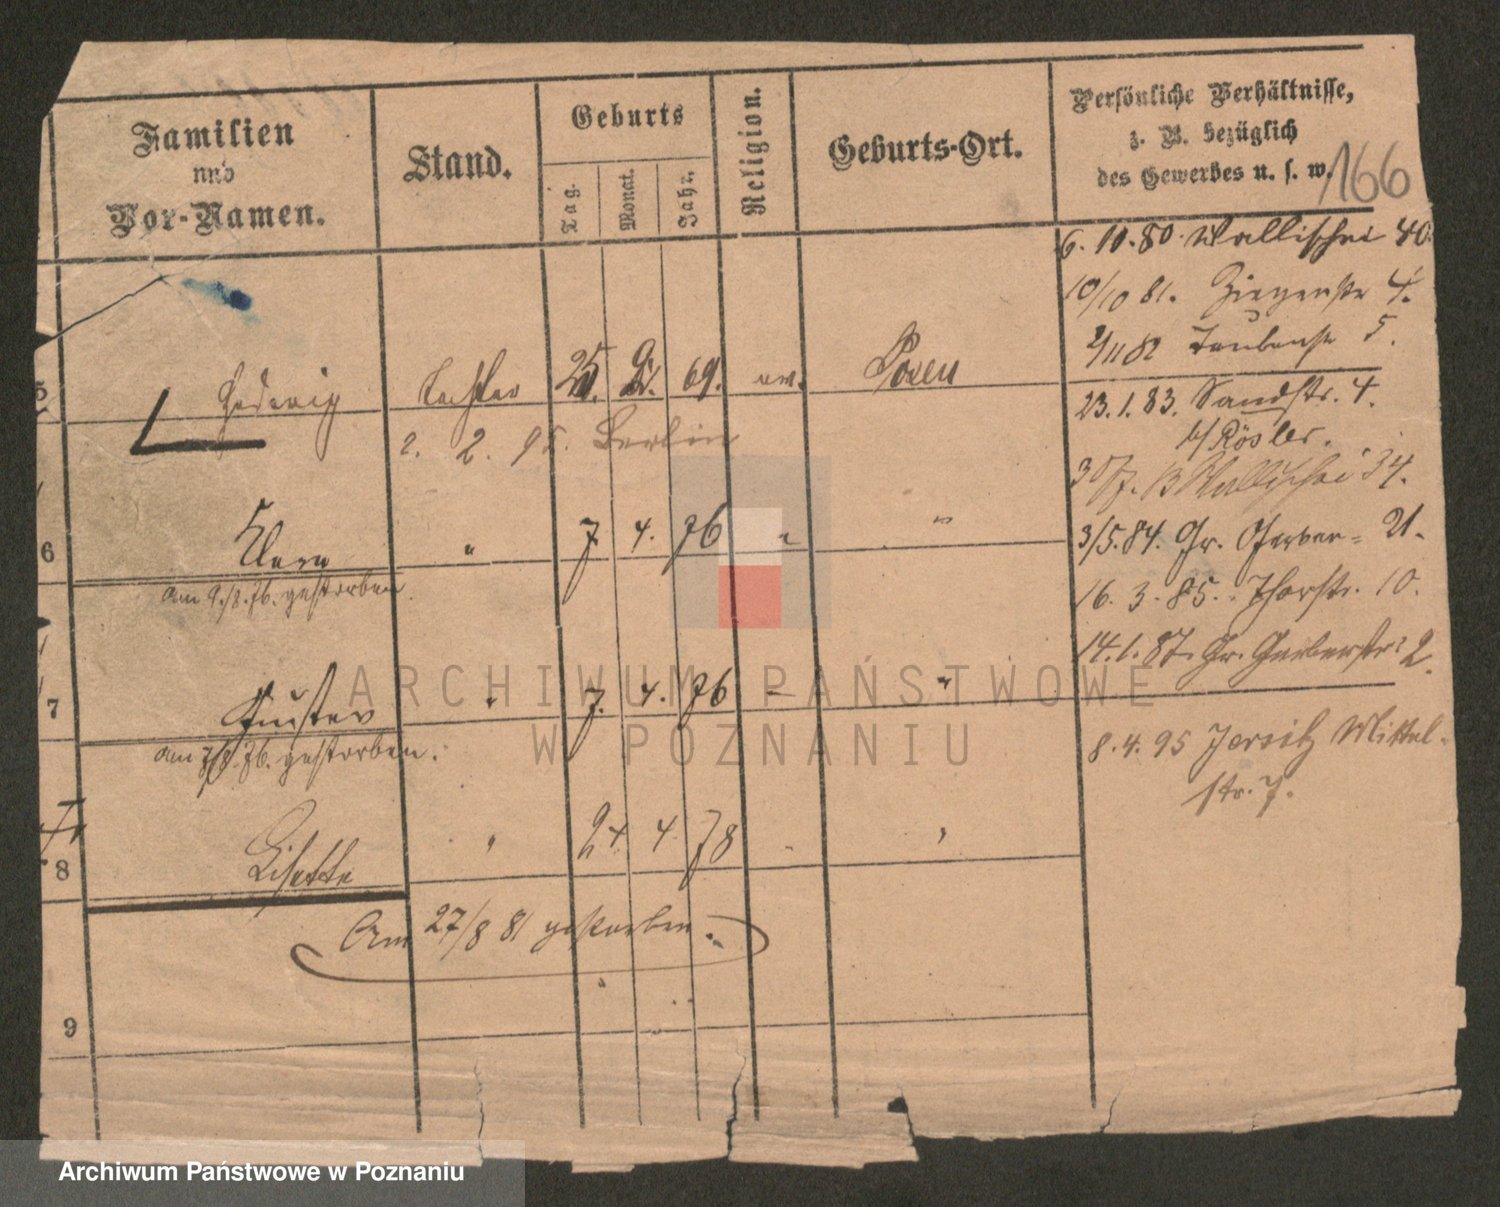 Familien
und
Vor-Namen.
Stand.
Geburts
Tag.
Monat.
Jahr.
Religion.
Geburts-Ort.
Persönliche Verhältnisse,
z. B. bezüglich
des Gewerbes u. s. w.
166
6. 10. 80. Wallischei 40.
10/10 81. Ziegenstr 4.
2/11 82 Taubenstr 5.
5 Hedwig Tochter 25. 69. ev. Posen
2. 2. 95. Berlin
23. 1. 83. Sandstr. 4.
b/ Rösler.
30/7. 83 Wallischei 34.
6 Clara " 7. 4. 76 " "
am 9./8. 76. gestorben.
3/5. 84. Gr. Gerber= 21.
16. 3. 85. Thorstr. 10.
14. 1. 87. Gr. Gerberstr: 2.
7 Gustav " 7. 4. 76 "
am 7/8. 76. gestorben.
8. 4. 95 Jersitz Mittel-
str. 7.
8 Lisette " 24. 4. 78 "
Am 27/8 81 gestorben.
9
ARCHIWUM PAŃSTWOWE
W POZNANIU
Archiwum Państwowe w Poznaniu